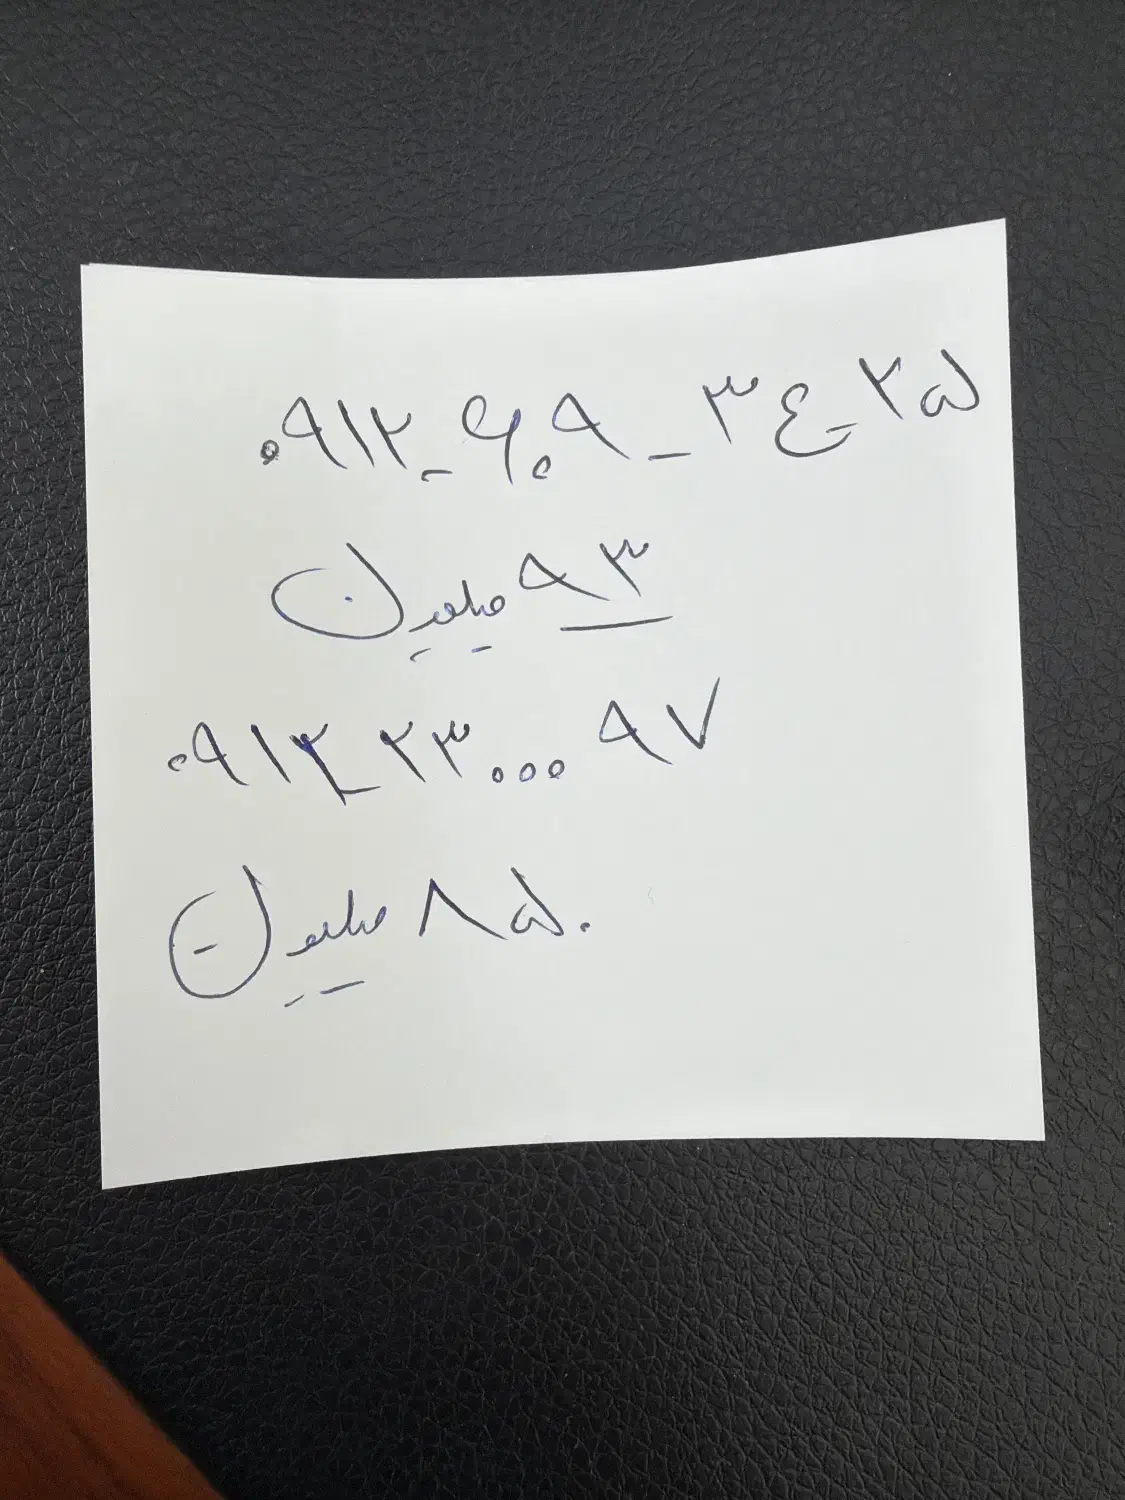 ۰۹۱۲-۶۰۹-۳۴-۲۵
۹۳ میلیون
۰۹۱۲ ۲۳۰۰۰ ۹۷
۸۵۰ میلیون